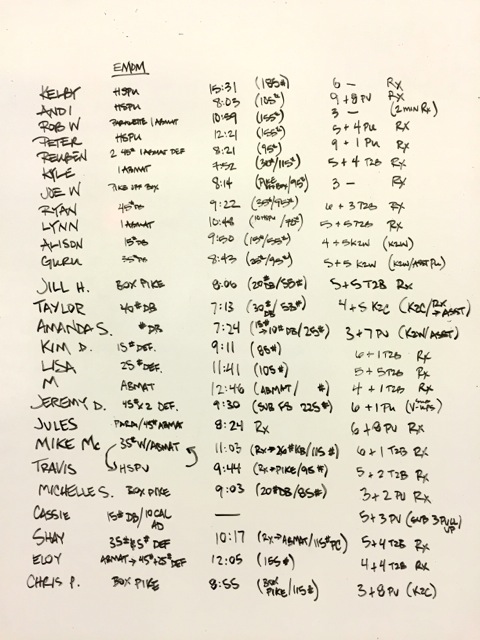 EMOM
KELBY HSPU 15:31 (185#) 6 — Rx
ANDI HSPU 8:03 (105#) 9 + 8 PU Rx
ROB W 1 ABMAT 10:59 (155#) 3 — (2 min Rx)
PETER HSPU 12:21 (155#) 5 + 4 PU Rx
REUBEN 2 45# 1 ABMAT DEF 8:21 (95#) 9 + 1 PU Rx
KYLE 1 ABMAT 7:52 (30#/115#) 5 + 4 T2B Rx
JOE W PIKE OFF BOX 8:14 (PIKE OFF BOX/95#) 3 — Rx
RYAN 45# DB 9:22 (35#/95#) 6 + 3 T2B Rx
LYNN 1 ABMAT 10:48 (10 HSPU /95#) 5 + 5 T2B Rx
ALISON 15# DB 9:50 (15#/55#) 4 + 5 K2W (K2W)
GURU 35# DB 8:43 (25#/95#) 5 + 5 K2W (K2W/ASST PU)
JILL H. BOX PIKE 8:06 (20# DB/53#) 5 + 5 T2B Rx
TAYLOR 40# DB 7:13 (30# DB/ 53#) 4 + 5 K2C (K2C/Rx → ASST)
AMANDA S. # DB 7:24 (15# → 10# DB/25#) 3 + 7 PU (K2W/ASST)
KIM D. 15# DEF. 9:11 (85#) 6 + 1 T2B Rx
LISA 25# DEF. 11:41 (105#) 5 + 5 T2B Rx
M ABMAT 12:46 (ABMAT/ #) 4 + 1 T2B Rx
JEREMY D. 45# x 2 DEF. 9:30 (SUB FS 225#) 6 + 1 PU (V-UPS)
JULES PARA/45# ABMAT 8:24 Rx 6 + 8 PU Rx
MIKE Mc 35# W/ABMAT 11:03 (Rx → 26# KB/115#) 6 + 1 T2B Rx
TRAVIS HSPU 9:44 (Rx → PIKE/95#) 5 + 2 T2B Rx
MICHELLE S. BOX PIKE 9:03 (20# DB/85#) 3 + 2 PU Rx
CASSIE 15# DB/10 CAL AD — 5 + 3 PU (SUB 3 PULL UP)
SHAY 35# 5# DEF 10:17 (Rx → ABMAT/115# PC) 5 + 4 T2B Rx
ELOY ABMAT → 45# + 25# DEF 12:05 (155#) 4 + 4 T2B Rx
CHRIS P. BOX PIKE 8:55 (BOX PIKE/115#) 3 + 8 PU (K2C)